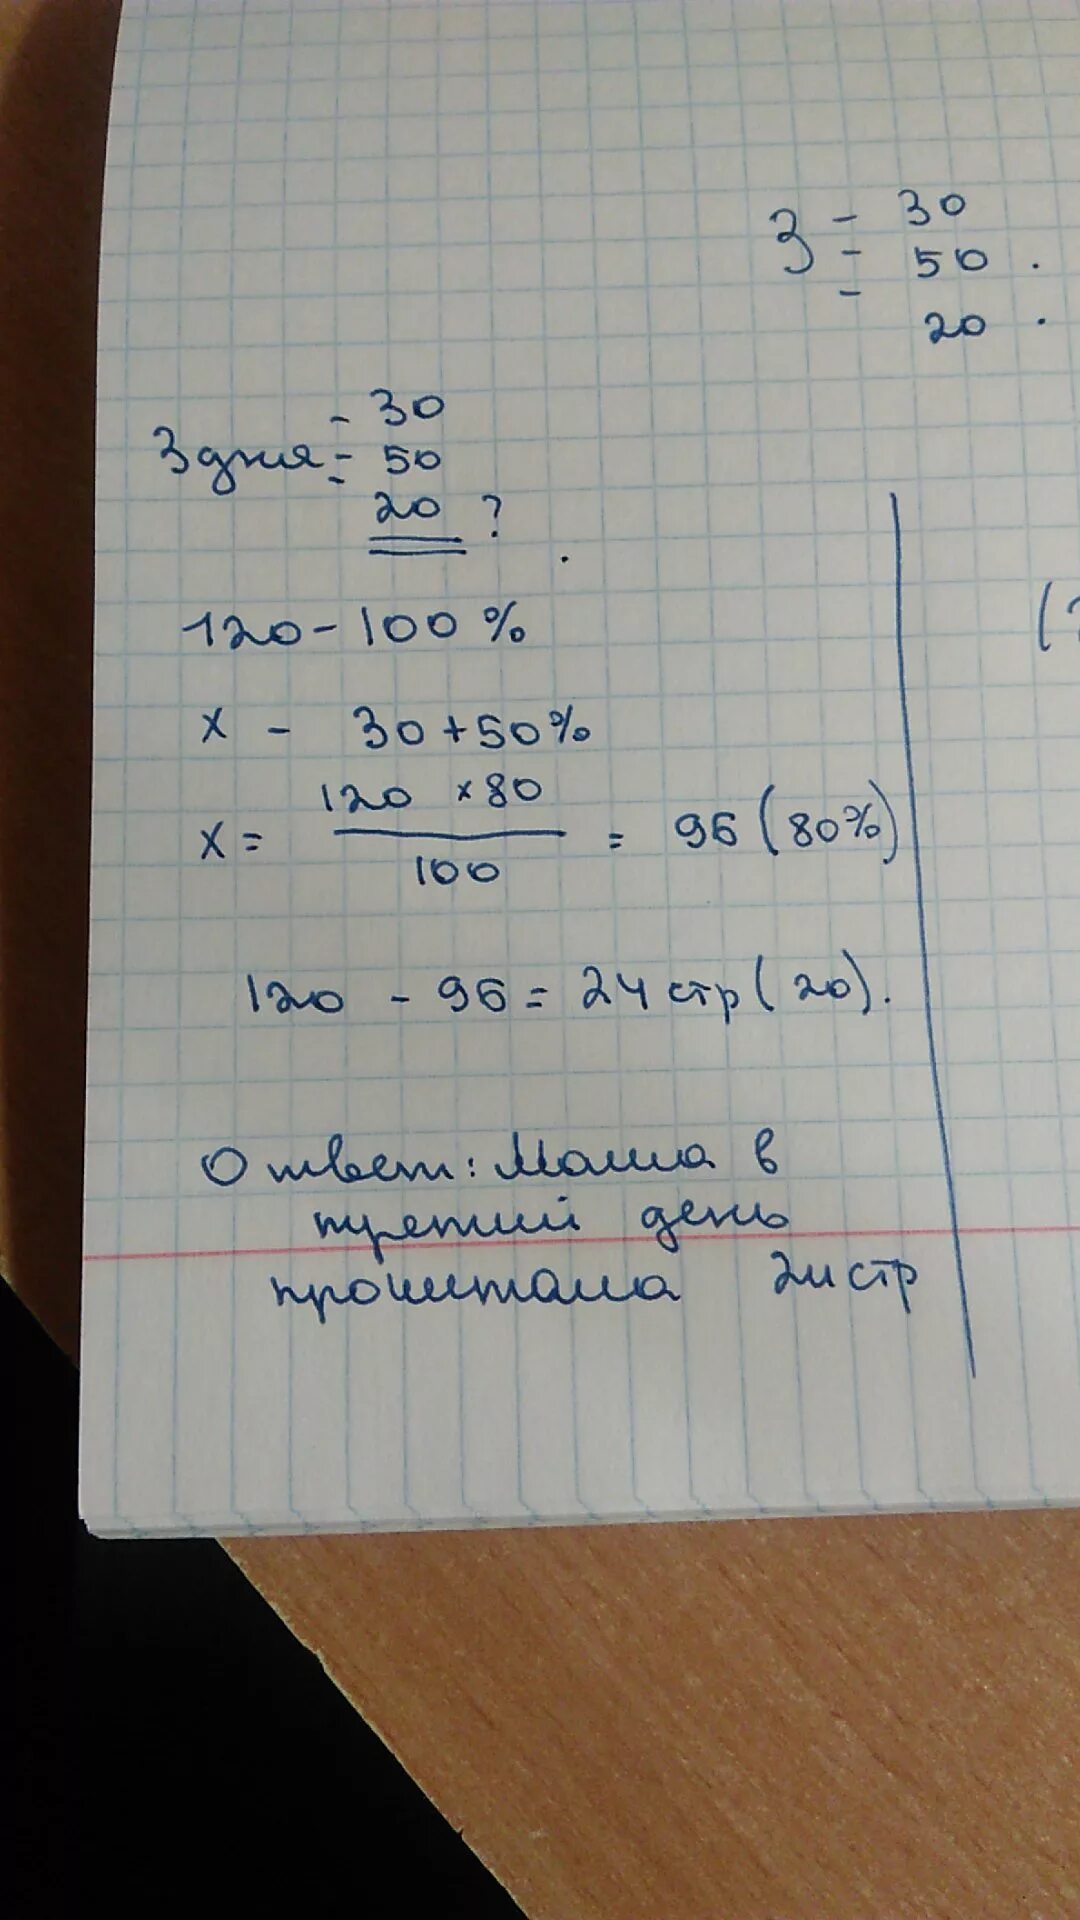 3 - 30
- 50 .
- 20 .
3 дня - 30
- 50
- 20 ?
120 - 100 %
x - 30 + 50 %
120 × 80
x = = 96 (80%)
100
120 - 96 = 24 стр (20).
Ответ: Маша в
третий день
прочитала 24 стр
(